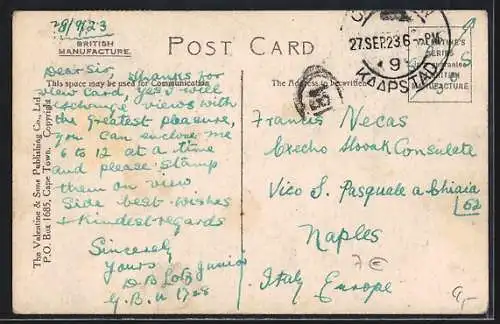 28/9/23
BRITISH
MANUFACTURE.
POST CARD
27.SEP.23 6 - PM
9
KAAPSTAD
VALENTINE'S
SERIES
BRITISH
MANUFACTURE
This space may be used for Communication.
The Address to be written
Dear Sir, Thanks for
your Card, yes I will
exchange views with
the greatest pleasure,
you can enclose me
6 to 12 at a time
and please stamp
them on view
side best wishes
+ kindest regards
Sincerely
Yours
D B Lotz Junior
G.B.U 1728
Francis Necas
Czecho Slovak Consulate
Vico S. Pasquale a Chiaia
62
Naples
Italy Europe
7€
The Valentine & Sons Publishing Co., Ltd.
P.O. Box 1685, Cape Town. Copyright